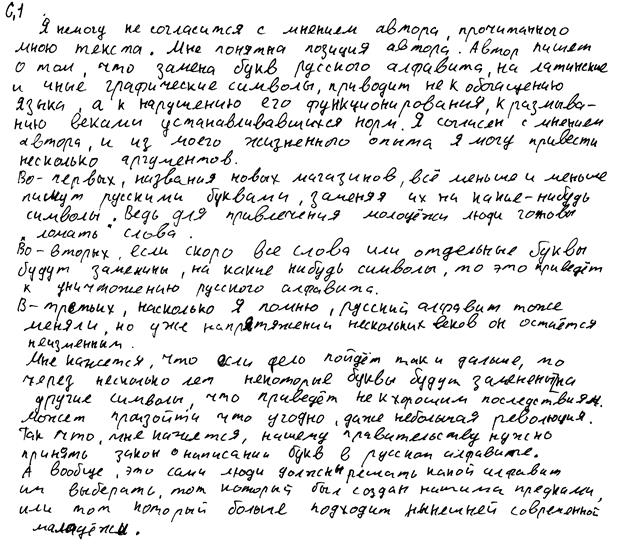 С,1
Я немогу не согласится с мнением автора, прочитанного
мною текста. Мне понятна позиция автора. Автор пишет
о том, что замена букв русского алфавита, на латинские
и иные графические символы, приводит не к обогащению
языка, а к нарушению его функционирования, к размыва-
нию веками устанавливавшихся норм. Я согласен с мнением
автора, и из моего жизненного опыта я могу привести
несколько аргументов.
Во-первых, названия новых магазинов, всё меньше и меньше
пишут русскими буквами, заменяя их на какие-нибудь
символы. Ведь для привлечения молодёжи люди готовы
"ломать" слова.
Во-вторых, если скоро все слова или отдельные буквы
будут заменины, на какие нибудь символы, то это приведёт
к уничтожению русского алфавита.
В-третьих, насколько я помню, русский алфавит тоже
меняли, но уже напротяжении нескольких веков он остаётся
неизменным.
Мне кажется, что если дело пойдёт так и дальше, то
через несколько лет некоторые буквы будут заменены на
другие символы, что приведёт не к хорошим последствиям.
Может произойти что угодно, даже небольшая революция.
Так что, мне кажется, нашему правительству нужно
принять закон о написании букв в русском алфавите.
А вообще, это сами люди должны решать какой алфавит
им выберать, тот который был создан нашима предками,
или тот который больше подходит нынешней современной
маладёжи.